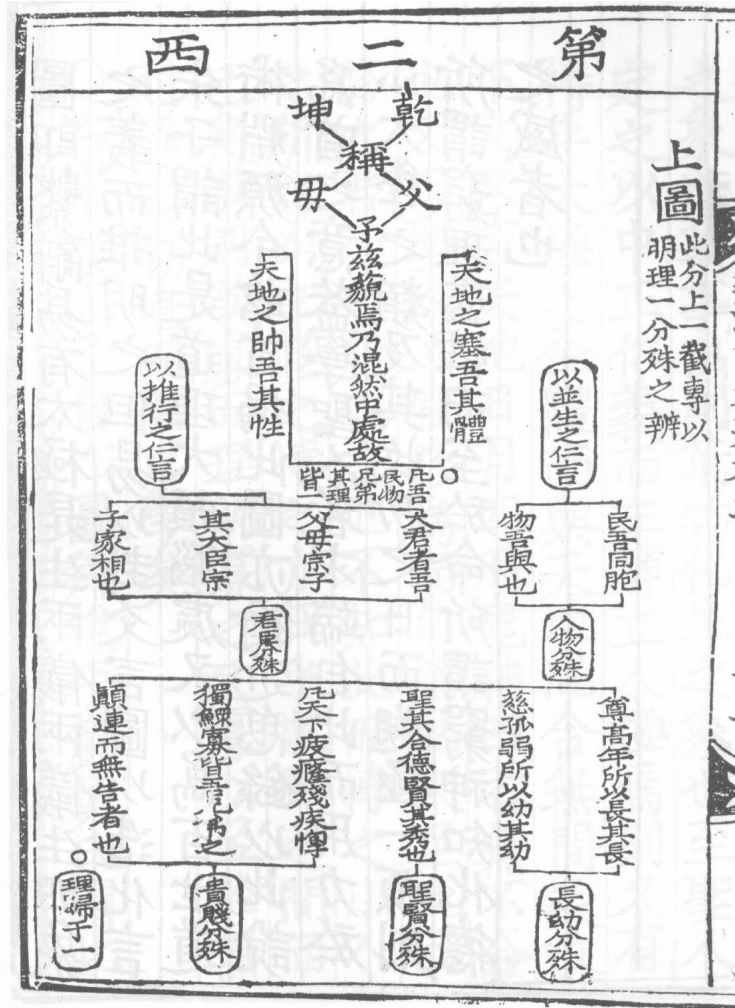 第二西
上圖
此分上一截專以
明理一分殊之辨
乾
坤
稱
父
母
予茲藐焉乃混然中處故
天地之塞吾其體
天地之帥吾其性
凡吾
民物
兄弟
其理
皆一
以並生之仁言
民吾同胞
物吾與也
人物分殊
以推行之仁言
大君者吾
父母宗子
其大臣宗
子家相也
君臣分殊
尊高年所以長其長
慈孤弱所以幼其幼
長幼分殊
聖其合德賢其秀也
聖賢分殊
凡天下疲癃殘疾惸
獨鰥寡皆吾兄弟之
顛連而無告者也
貴賤分殊
理歸于一